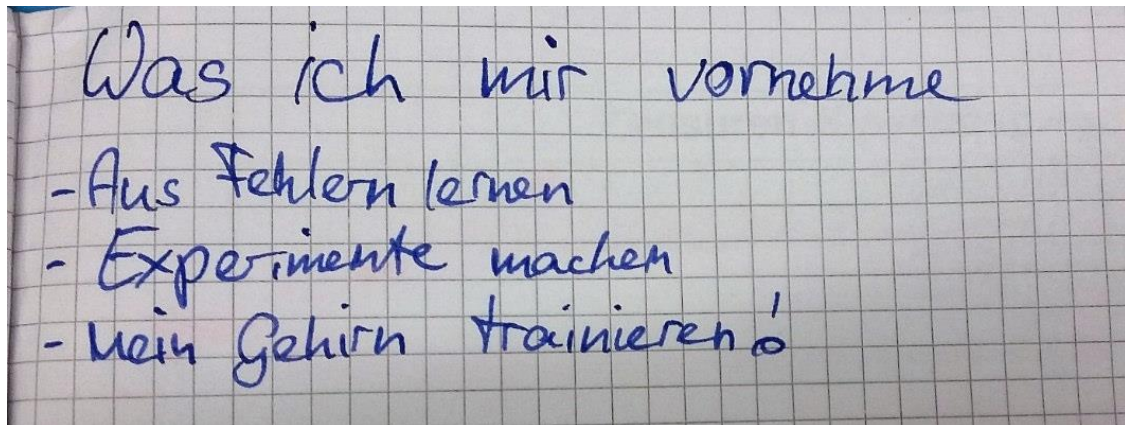 Was ich mir vornehme
- Aus Fehlern lernen
- Experimente machen
- Mein Gehirn trainieren!